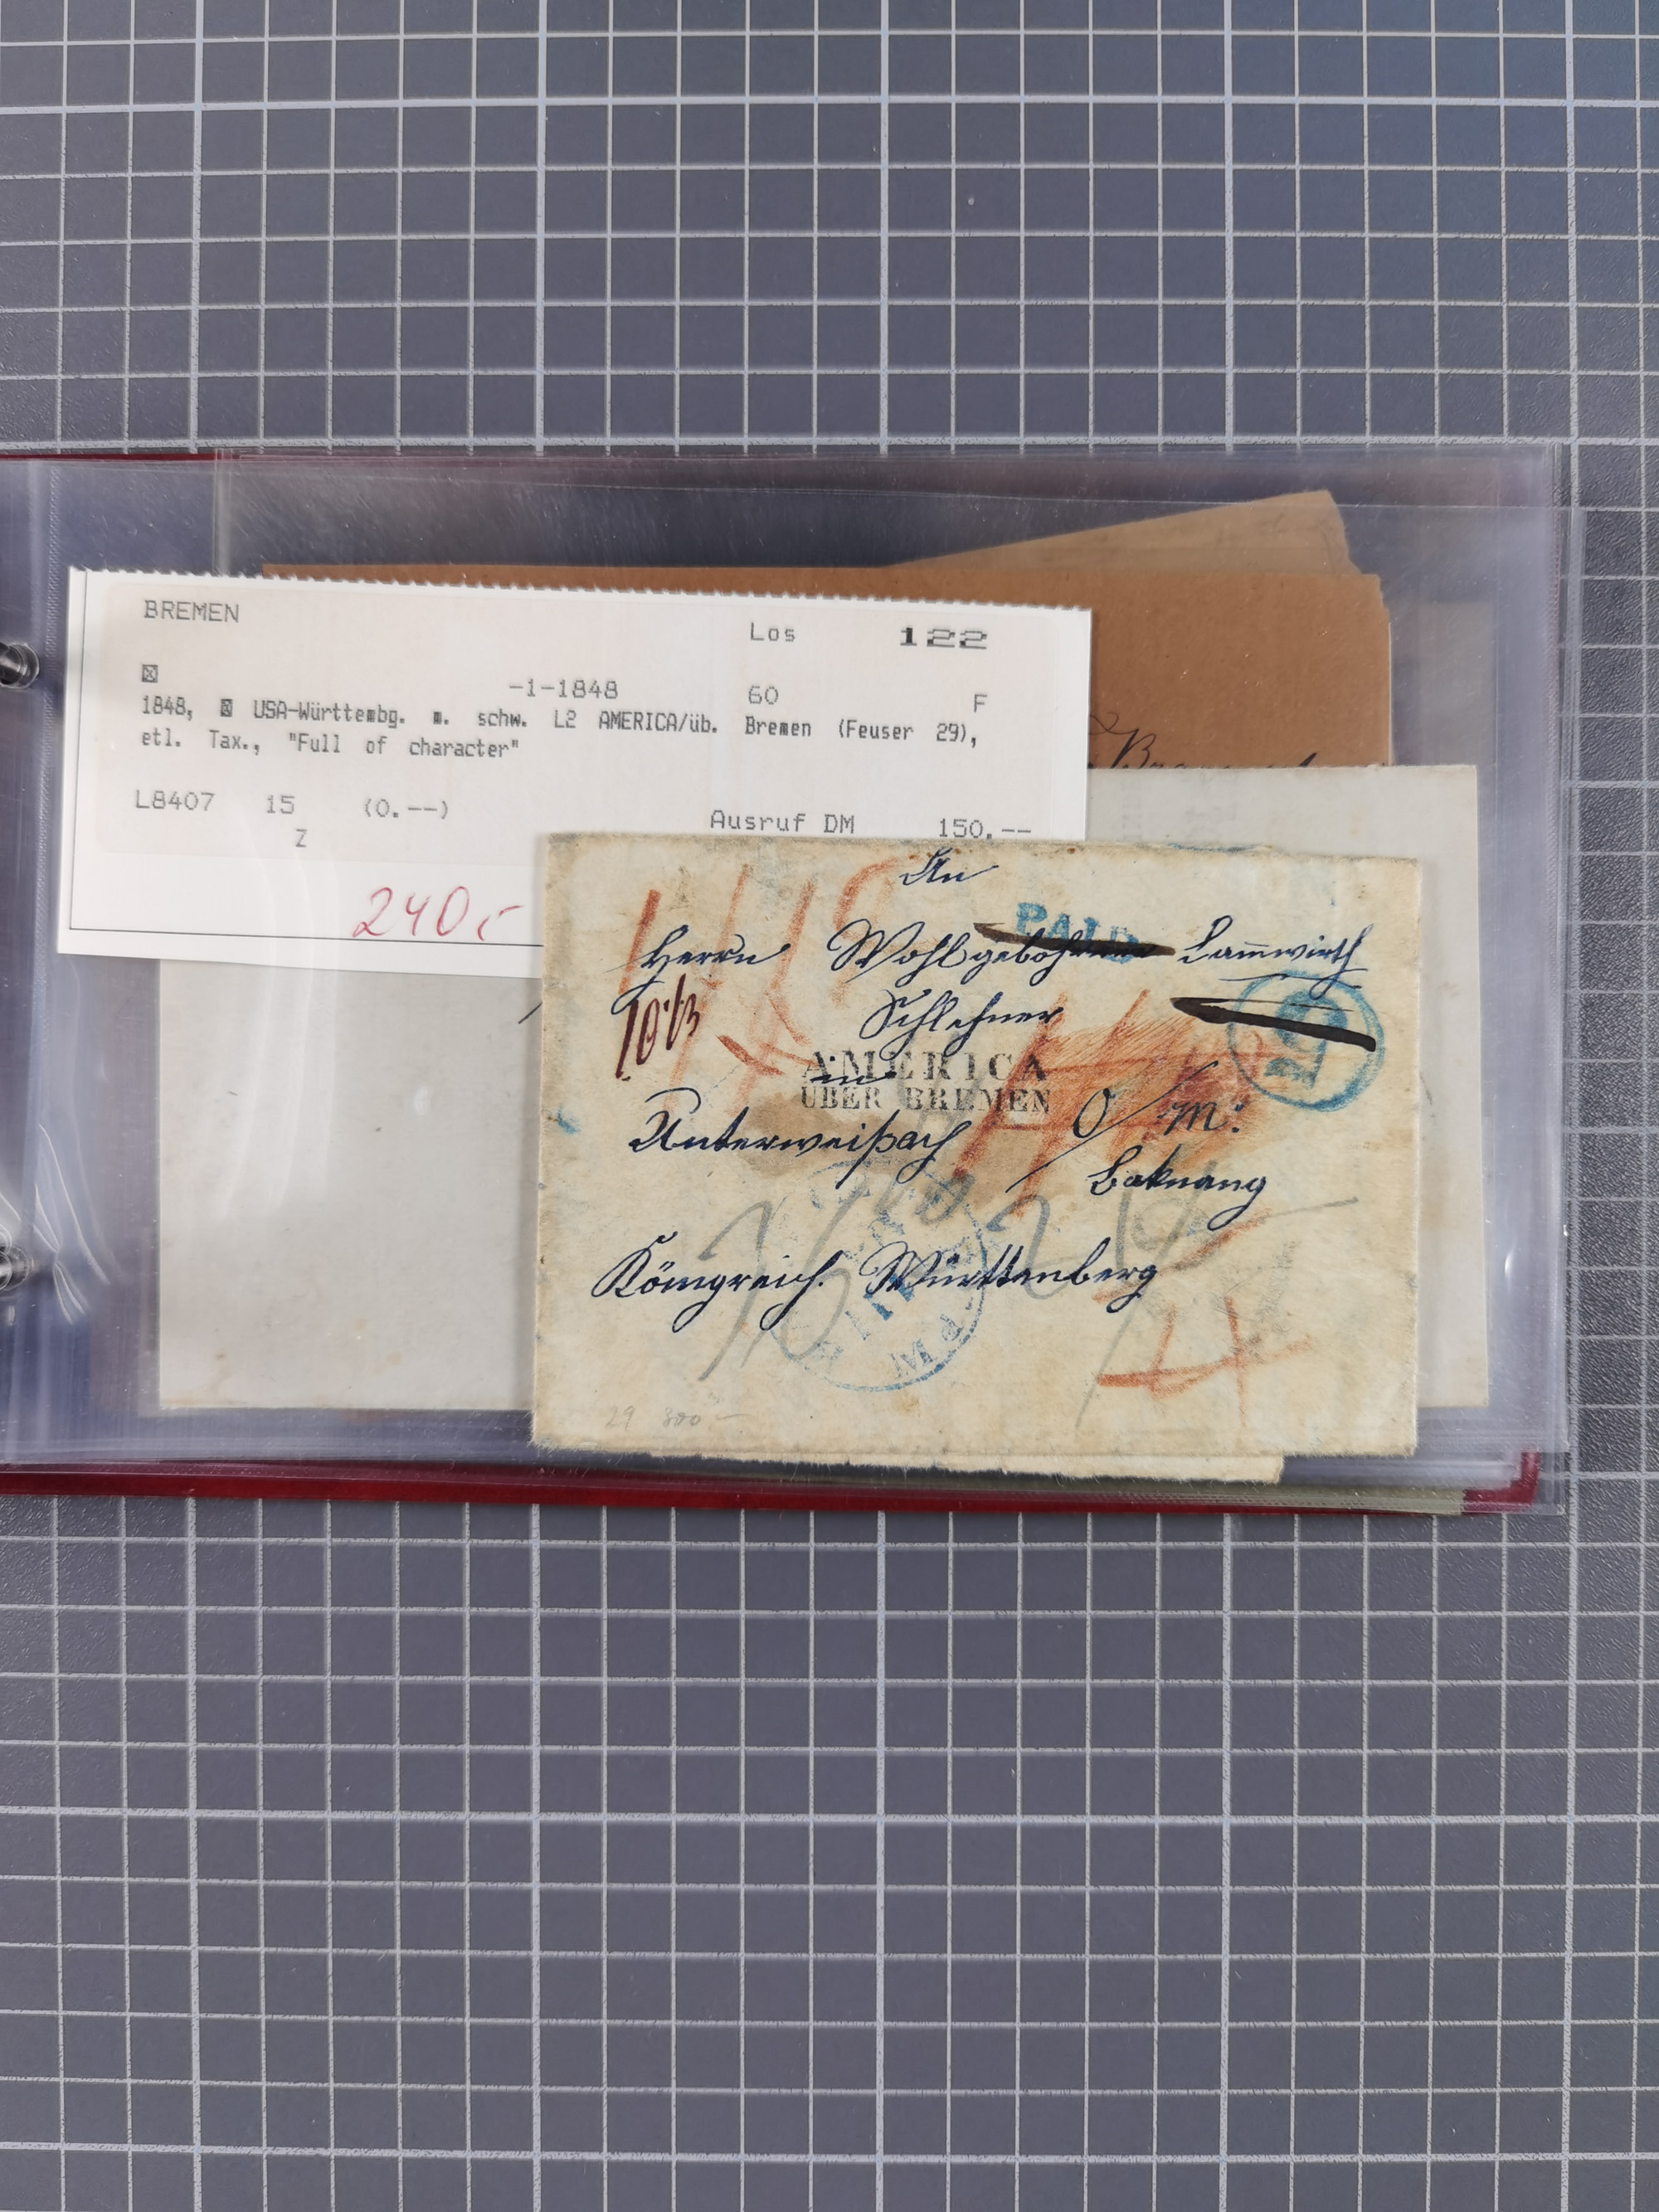 BREMEN
Los 122
-1-1848 60 F
1848, USA-Württembg. m. schw. L2 AMERICA/üb. Bremen (Feuser 29),
etl. Tax., "Full of character"
L8407 15 (0.--)
Ausruf DM 150.--
Z
240,-
An
PAID
Herrn Wohlgebohrnen Lammwirth
Schlehner
10
AMERICA
in
ÜBER BREMEN
Unterweißach O/m:
Baknang
Königreich. Württenberg
4
29 300-